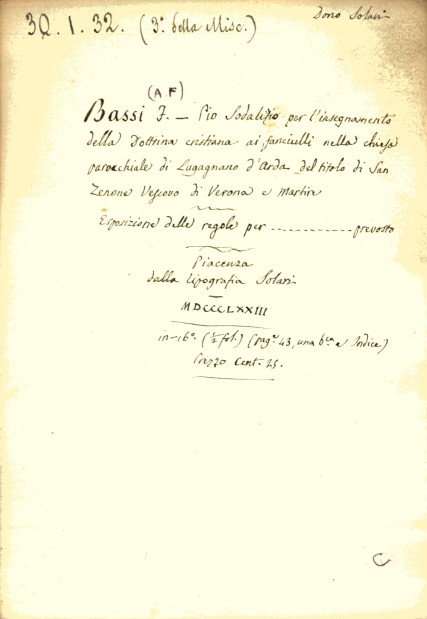 30.1.32. (3° della Misc.)
Dono Solari
(A F)
Bassi F. — Pio Sodalizio per l'insegnamento
della Dottrina cristiana ai fanciulli nella chiesa
parocchiale di Lugagnano d'Arda del titolo di San
Zenone Vescovo di Verona e Martire
Esposizione delle regole per ............ prevosto
Piacenza
dalla tipografia Solari
MDCCCLXXIII
in-16° (½ fol.) (pag.e 43, una b.ca e Indice)
Prezzo Cent. 25.
C